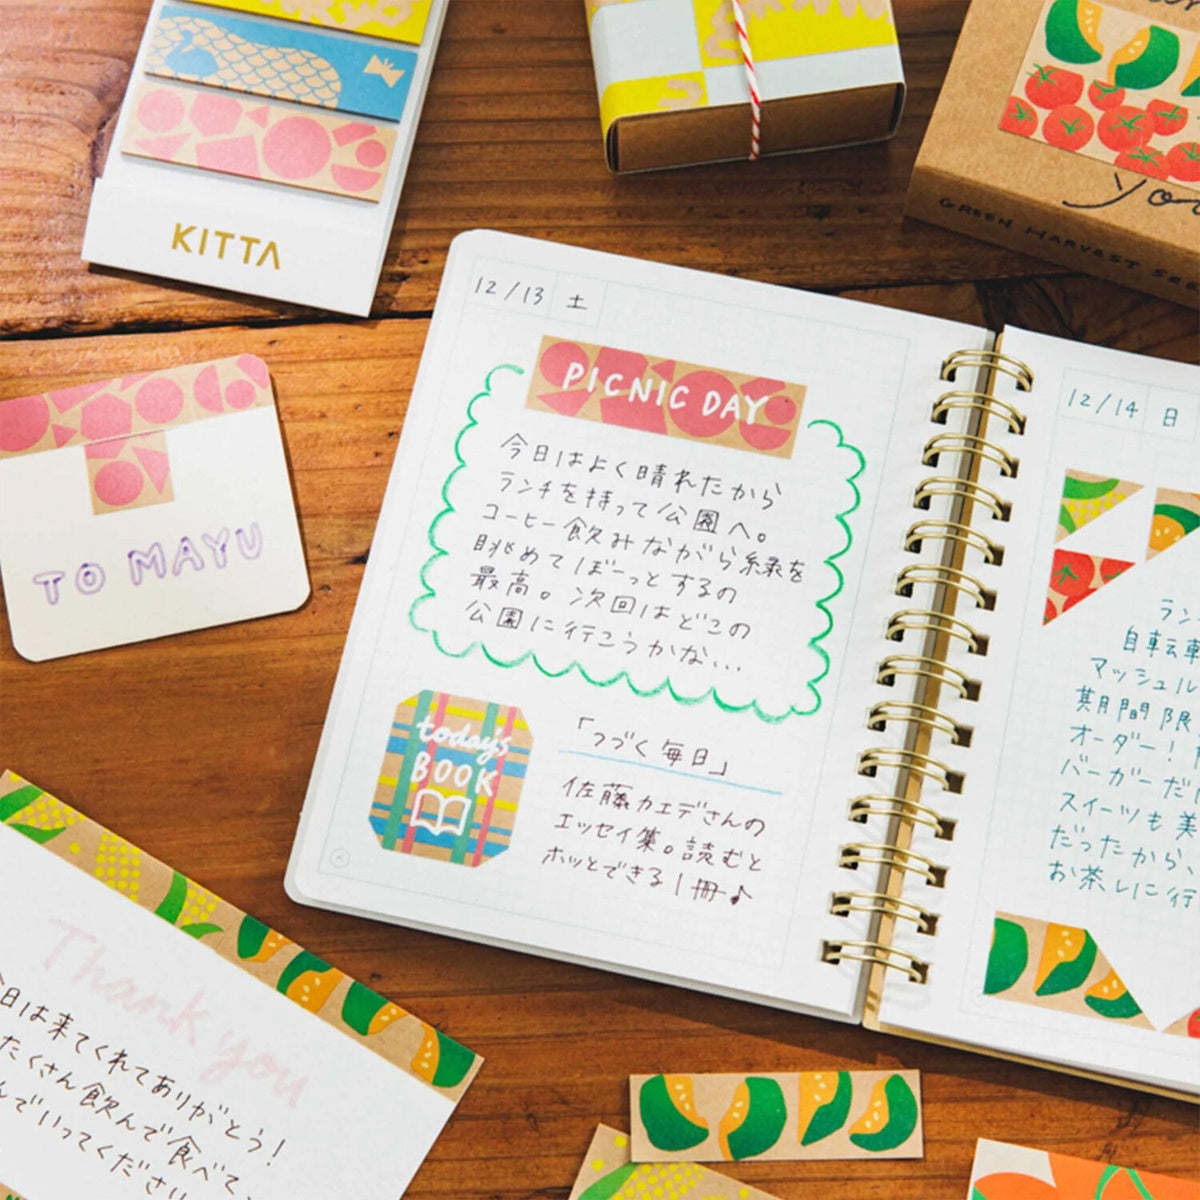 KITTA
GREEN HARVEST SEE
TO MAYU
12/13 土
PICNIC DAY
今日はよく晴れたから
ランチを持って公園へ。
コーヒー飲みながら緑を
眺めてぼーっとするの
最高。次回はどこの
公園に行こうかな...
today's
BOOK
「つづく毎日」
佐藤カエデさんの
エッセイ集。読むと
ホッとできる1冊♪
12/14 日
ラン
自転車
マッシュル
期間限
オーダー!
バーガーだ
スイーツも美
だったから、
お茶しに行
Thank you
今日は来てくれてありがとう!
たくさん飲んで食べて、
んでいってください